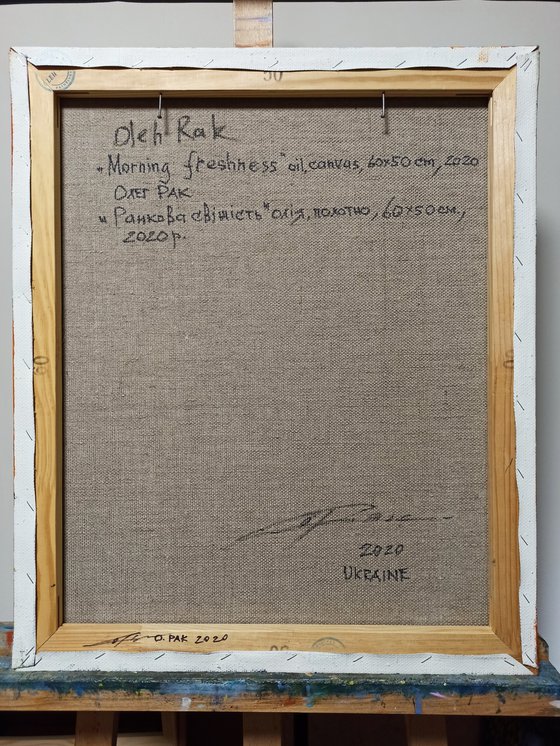 50
Oleh Rak
„Morning freshness" oil, canvas, 60x50 cm, 2020
Олег Рак
„Ранкова свіжість" олія, полотно, 60x50 см.,
2020 р.
60
2020
UKRAINE
О. РАК 2020